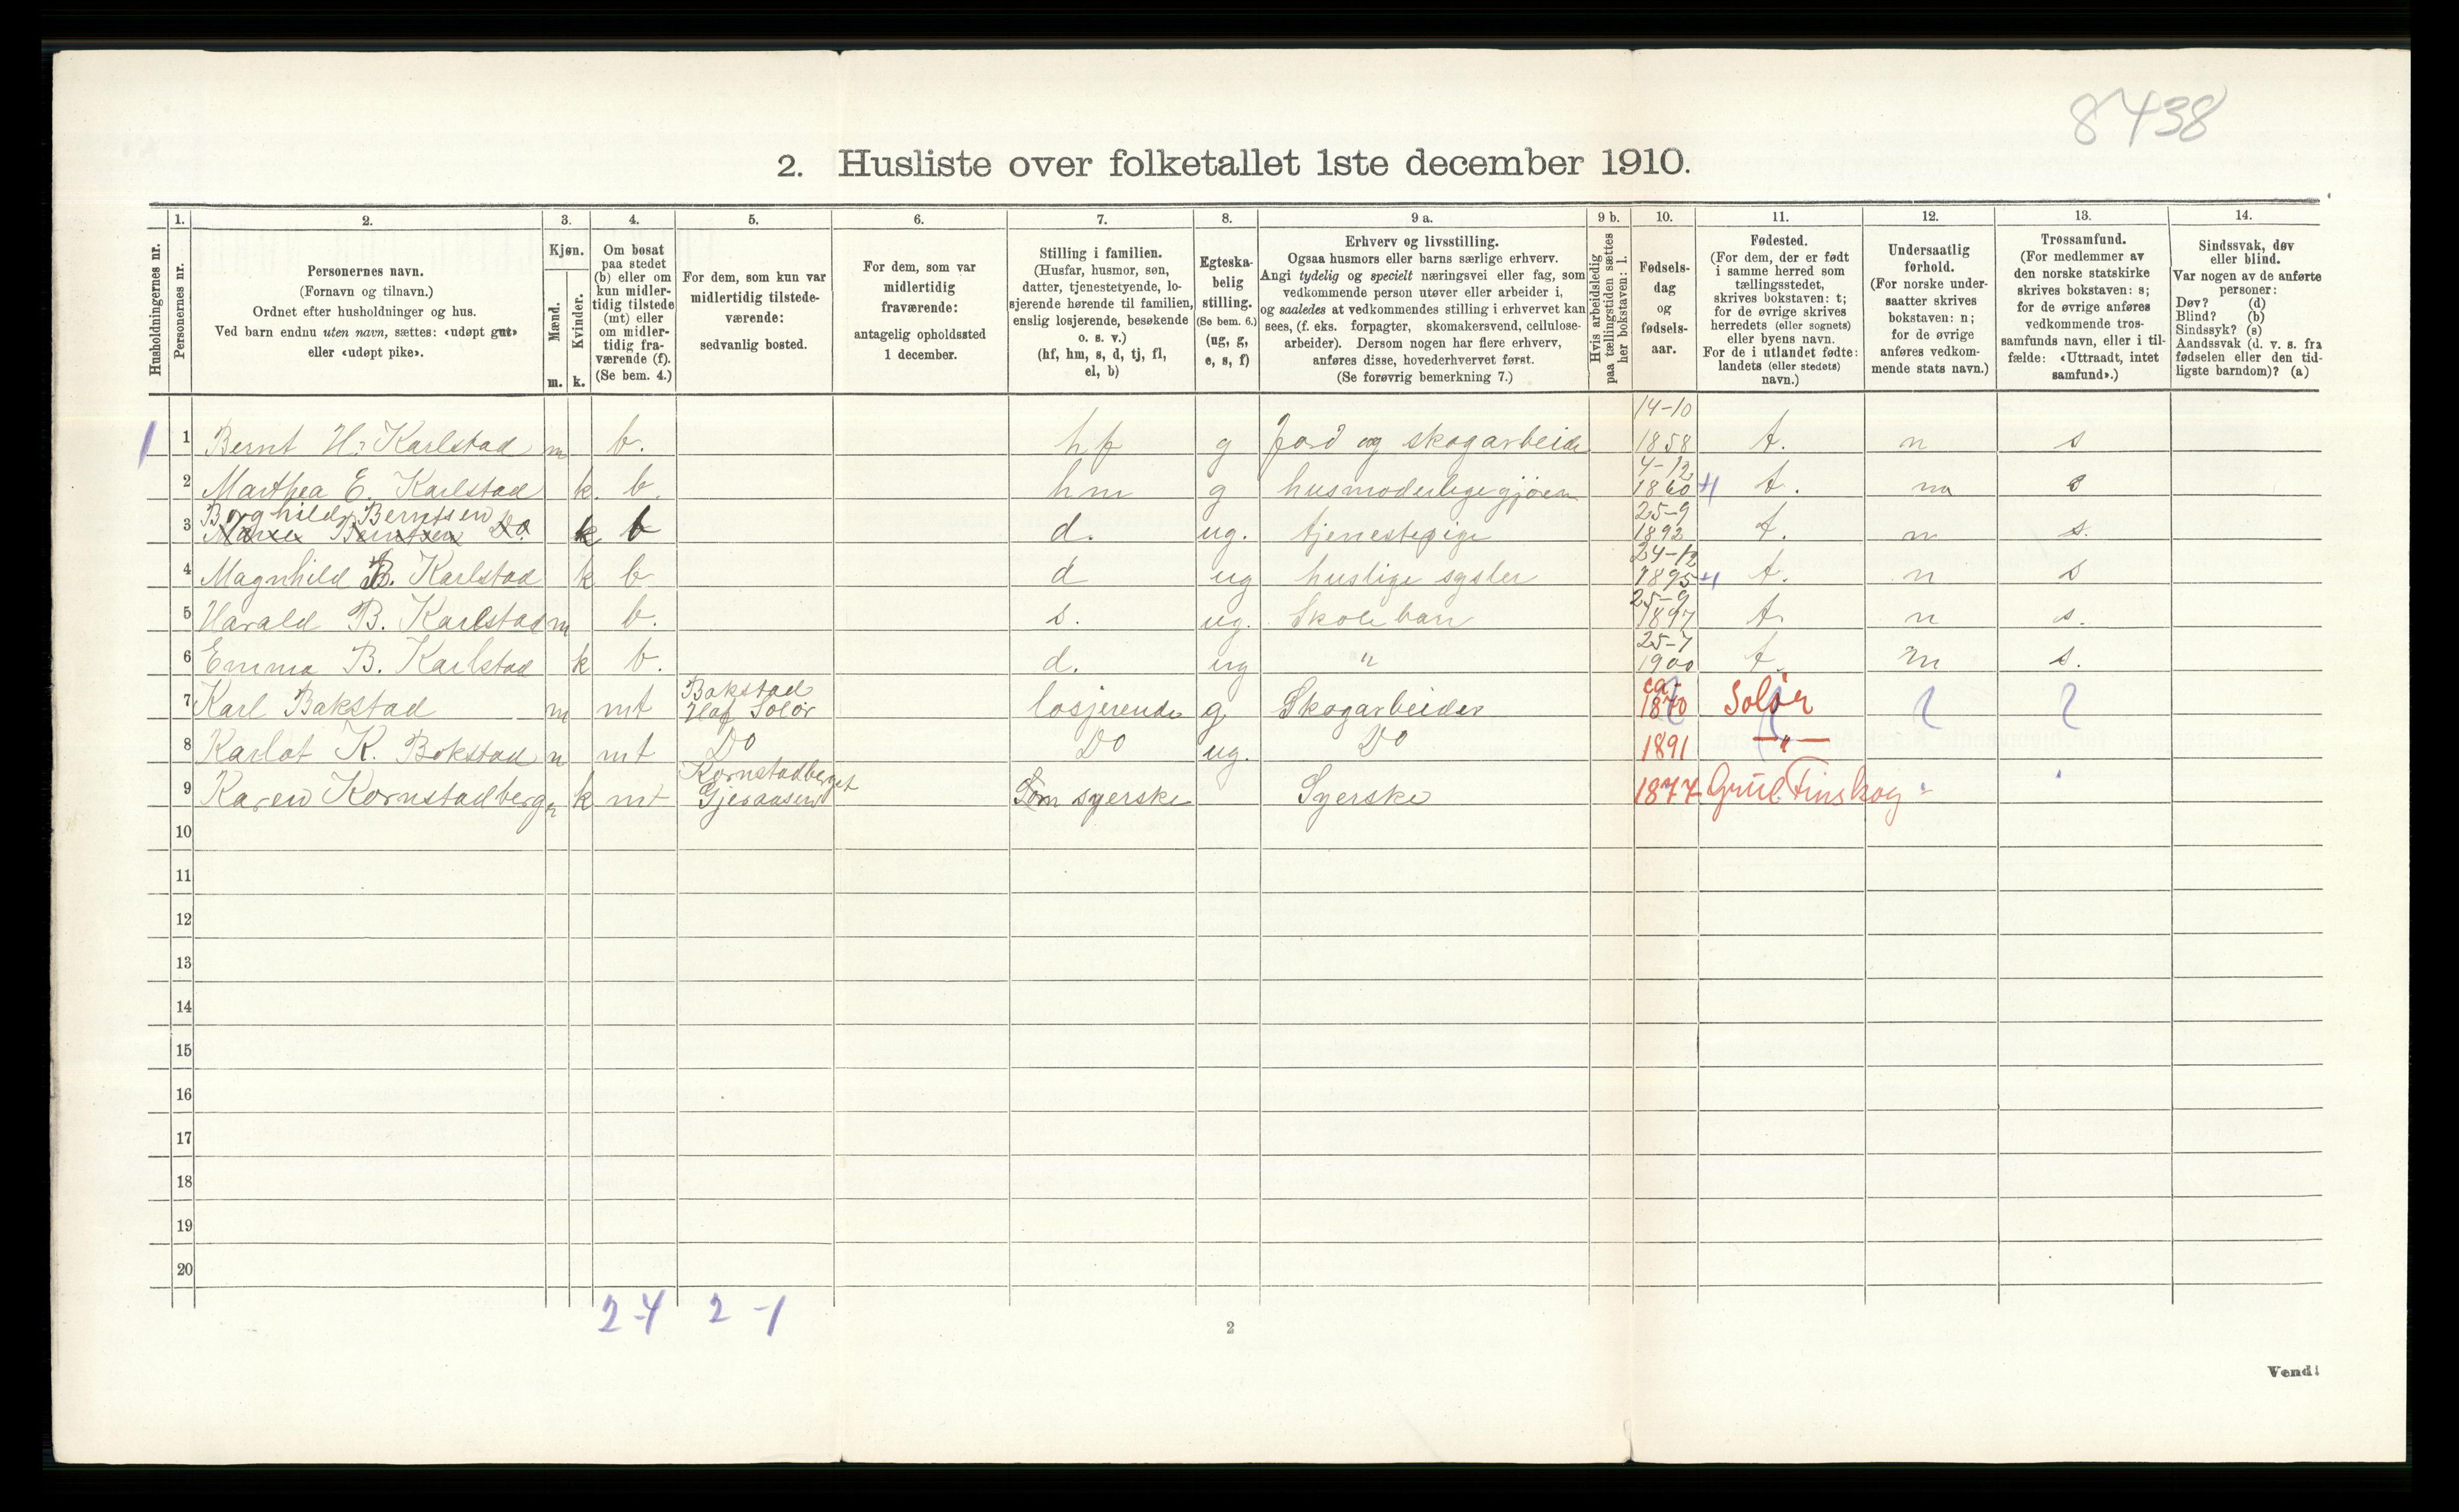 8438
2. Husliste over folketallet 1ste december 1910.
Husholdningernes nr.
1.
Personernes nr.
2.
Personernes navn.
(Fornavn og tilnavn.)
Ordnet efter husholdninger og hus.
Ved barn endnu uten navn, sættes: «udøpt gut»
eller «udøpt pike».
3.
Kjøn.
Mænd.
Kvinder.
m. k.
4.
Om bosat
paa stedet
(b) eller om
kun midler-
tidig tilstede
(mt) eller
om midler-
tidig fra-
værende (f).
(Se bem. 4.)
5.
For dem, som kun var
midlertidig tilstede-
værende:
sedvanlig bosted.
6.
For dem, som var
midlertidig
fraværende:
antagelig opholdssted
1 december.
7.
Stilling i familien.
(Husfar, husmor, søn,
datter, tjenestetyende, lo-
sjerende hørende til familien,
enslig losjerende, besøkende
o. s. v.)
(hf, hm, s, d, tj, fl,
el, b)
8.
Egteska-
belig
stilling.
(Se bem. 6.)
(ug, g,
e, s, f)
9 a.
Erhverv og livsstilling.
Ogsaa husmors eller barns særlige erhverv.
Angi tydelig og specielt næringsvei eller fag, som
vedkommende person utøver eller arbeider i,
og saaledes at vedkommendes stilling i erhvervet kan
sees, (f. eks. forpagter, skomakersvend, cellulose-
arbeider). Dersom nogen har flere erhverv,
anføres disse, hovederhvervet først.
(Se forøvrig bemerkning 7.)
9 b.
Hvis arbeidsledig
paa tællingstiden sættes
her bokstaven: l.
10.
Fødsels-
dag
og
fødsels-
aar.
11.
Fødested.
(For dem, der er født
i samme herred som
tællingsstedet,
skrives bokstaven: t;
for de øvrige skrives
herredets (eller sognets)
eller byens navn.
For de i utlandet fødte:
landets (eller stedets)
navn.)
12.
Undersaatlig
forhold.
(For norske under-
saatter skrives
bokstaven: n;
for de øvrige
anføres vedkom-
mende stats navn.)
13.
Trossamfund.
(For medlemmer av
den norske statskirke
skrives bokstaven: s;
for de øvrige anføres
vedkommende tros-
samfunds navn, eller i til-
fælde: «Uttraadt, intet
samfund».)
14.
Sindssvak, døv
eller blind.
Var nogen av de anførte
personer:
Døv? (d)
Blind? (b)
Sindssyk? (s)
Aandssvak (d. v. s. fra
fødselen eller den tid-
ligste barndom)? (a)
1 1 Bernt H. Karlstad m b. hf g Jord og skogarbeide 14-10 1858 t. n s
2 Marthea E. Karlstad k. b. hm g husmoderlige gjøren 4-12 1860 t. n s
3 Borghild Berntsen Do k b d. ug. tjenestepige 25-9 1892 t. n s.
4 Magnhild B. Karlstad k b d ug huslige sysler 24-12 1895 t. n s
5 Harald B. Karlstad m b. s. ug. Skolebarn 25-9 1897 t. n s.
6 Emma B. Karlstad k b. d. ug " 25-7 1900 t. n s.
7 Karl Bakstad m mt Bakstad Hof Solør losjerende g Skogarbeider ca. 1870 Solør
8 Karlot K. Bokstad m mt Do Do ug. Do 1891 —"—
9 Karen Kornstadberget k mt Kornstadberget som syerske Syerske 1877 Grue Finskog
10
11
12
13
14
15
16
17
18
19
20
2-4 2-1
2
Vend!